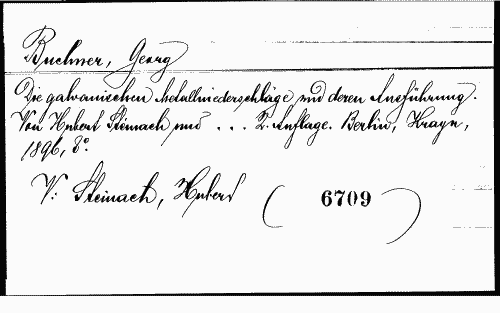 Buchner, Georg
Die galvanischen Metallniederschläge und deren Ausführung.
Von Hubert Steinach und . . . 2. Auflage. Berlin, Krayn,
1896, 8°.
V: Steinach, Hubert
( 6709 )